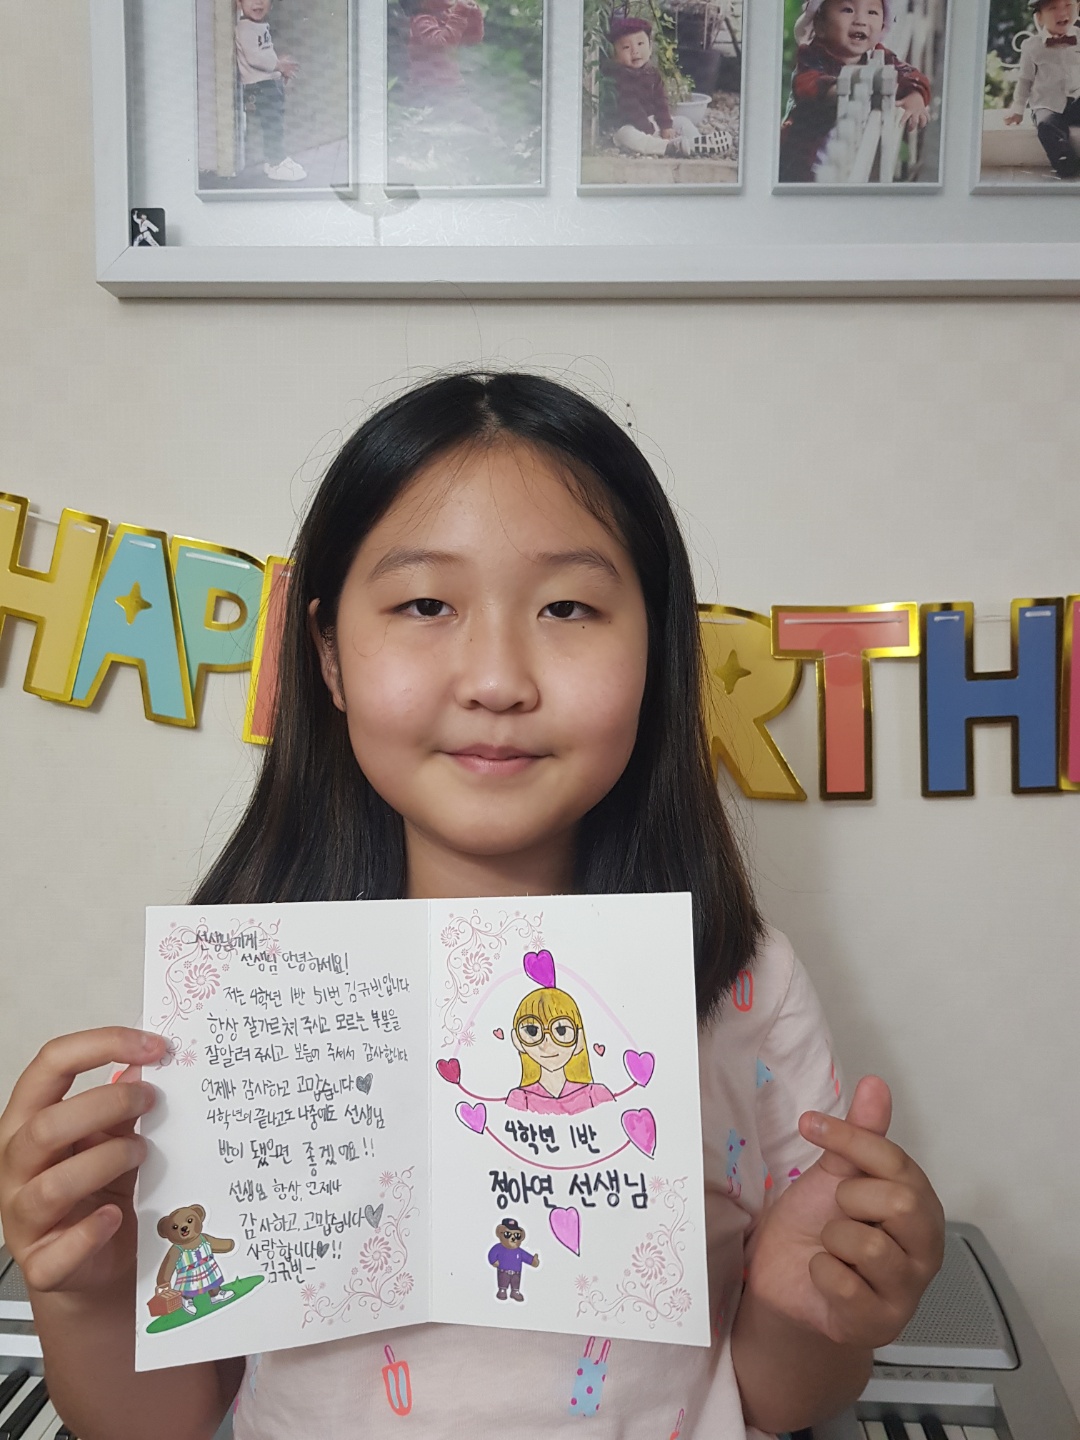 HAPP
RTH
선생님에게-
선생님 안녕하세요!
저는 4학년 1반 51번 김규빈입니다
항상 잘가르쳐 주시고 모르는 부분을
잘알려 주시고 보듬어 주셔서 감사합니다
언제나 감사하고 고맙습니다♥
4학년이 끝나고도 나중에도 선생님
반이 됐으면 좋겠어요!!
선생님 항상, 언제나
감사하고, 고맙습니다♥
사랑합니다♥!!
김규빈-
4학년 1반
정아연 선생님